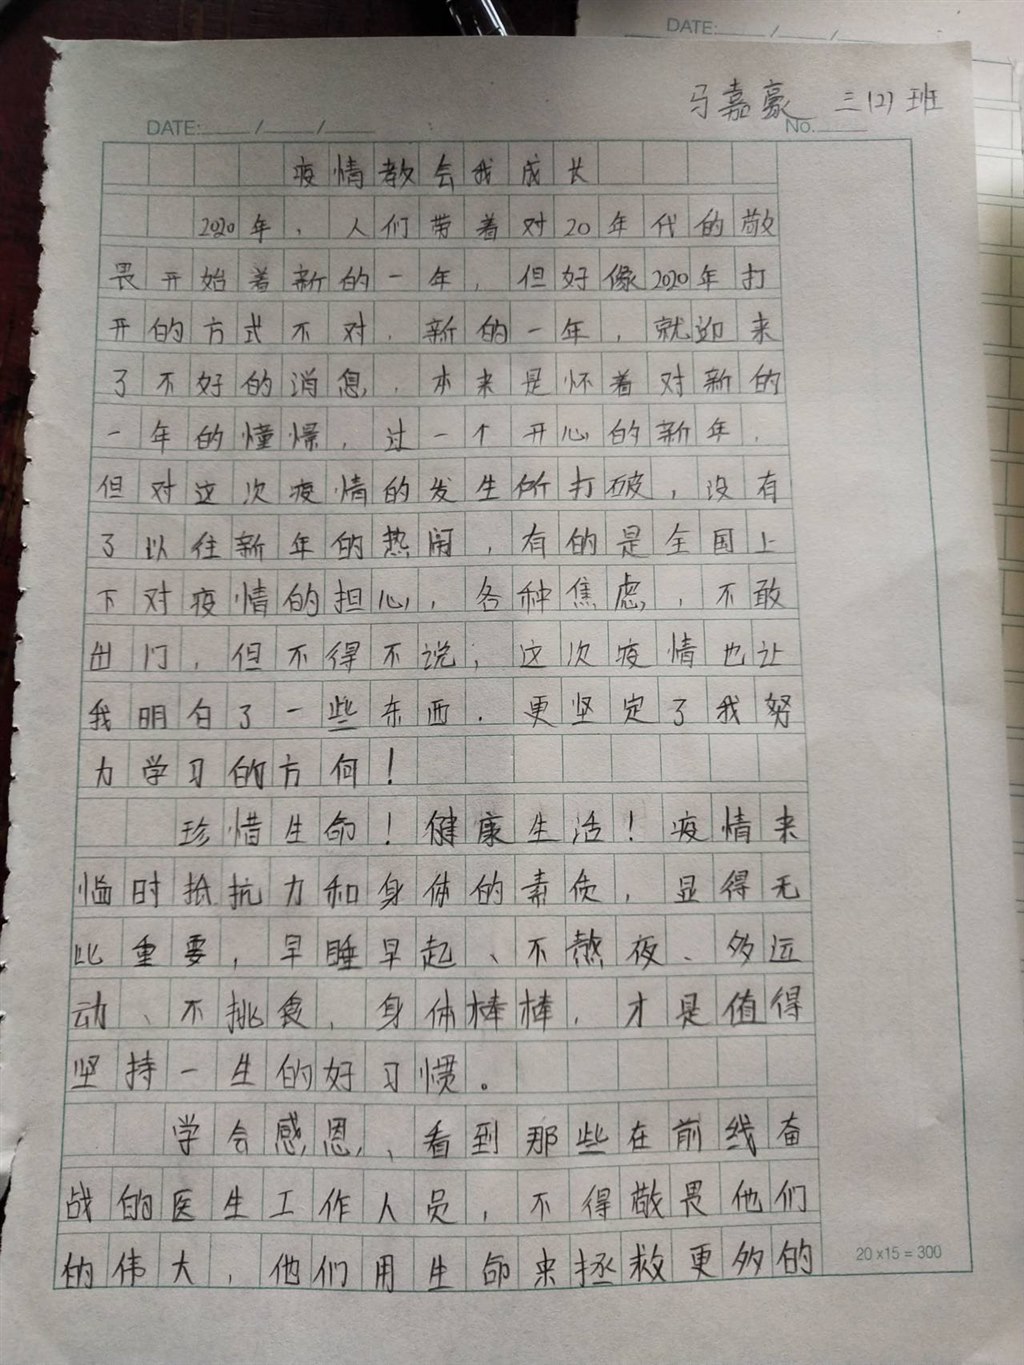 DATE: / /
马嘉豪 三(2)班
DATE: / /
No.
疫情教会我成长
2020年，人们带着对20年代的敬
畏开始着新的一年，但好像2020年打
开的方式不对，新的一年，就迎来
了不好的消息，本来是怀着对新的
一年的憧憬，过一个开心的新年，
但对这次疫情的发生所打破，没有
了以往新年的热闹，有的是全国上
下对疫情的担心，各种焦虑，不敢
出门，但不得不说，这次疫情也让
我明白了一些东西．更坚定了我努
力学习的方何！
珍惜生命！健康生活！疫情来
临时抵抗力和身体的素质，显得无
比重要，早睡早起、不熬夜、多运
动、不挑食，身体棒棒，才是值得
坚持一生的好习惯。
学会感恩，看到那些在前线奋
战的医生工作人员，不得敬畏他们
的伟大，他们用生命来拯救更多的
20x15=300